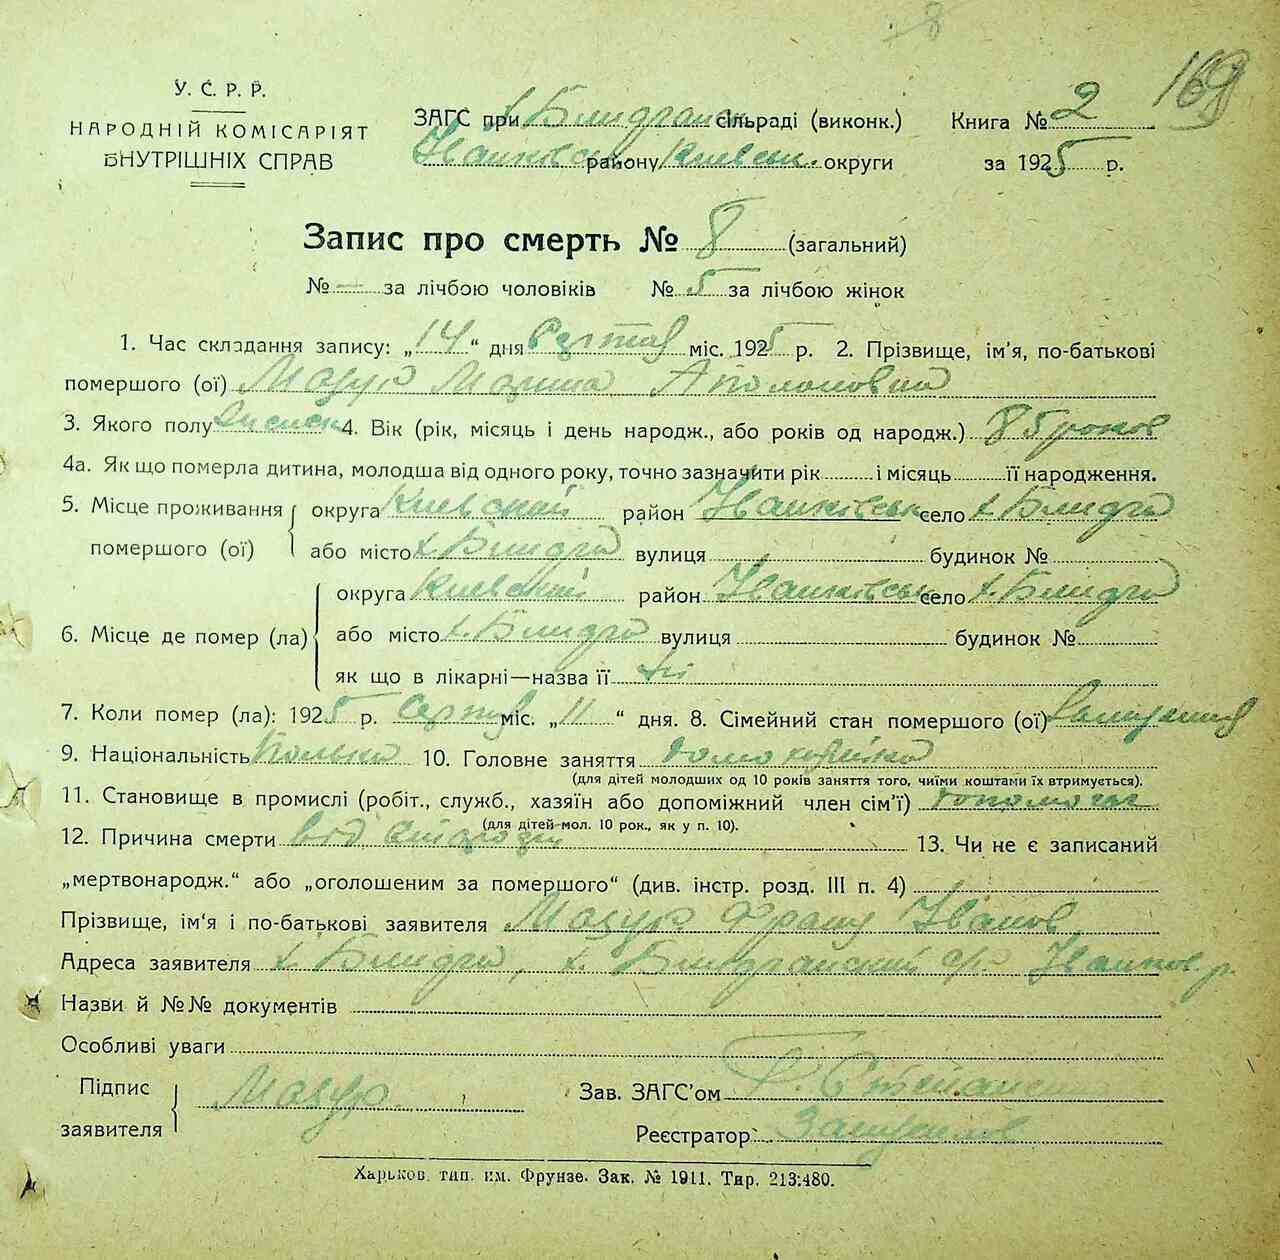 169
У. С. Р. Р.
НАРОДНІЙ КОМІСАРІЯТ
ВНУТРІШНІХ СПРАВ
ЗАГС при сільраді (виконк.) Книга № 2
Іванківськ району Киевськ. округи за 1925 р.
Запис про смерть № 8 (загальний)
№ — за лічбою чоловіків № 5 за лічбою жінок
1. Час складання запису: „14“ дня міс. 1925 р. 2. Прізвище, ім'я, по-батькові
помершого (ої) Мазур
3. Якого полу 4. Вік (рік, місяць і день народж., або років од народж.) 85 роков
4а. Як що померла дитина, молодша від одного року, точно зазначити рік і місяць її народження.
5. Місце проживання округа Киевский район Іванківськ село х. Блидча
помершого (ої) або місто х. Блидча вулиця будинок №
округа Киевский район Іванківськ село х. Блидча
6. Місце де помер (ла) або місто х. Блидча вулиця будинок №
як що в лікарні—назва її
7. Коли помер (ла): 1925 р. міс. „11“ дня. 8. Сімейний стан помершого (ої)
9. Національність Полька 10. Головне заняття домохозяйка
(для дітей молодших од 10 років заняття того, чиїми коштами їх втримується).
11. Становище в промислі (робіт., служб., хазяїн або допоміжний член сім'ї)
(для дітей мол. 10 рок., як у п. 10).
12. Причина смерти від 13. Чи не є записаний
„мертвонародж.“ або „оголошеним за помершого“ (див. інстр. розд. III п. 4)
Прізвище, ім'я і по-батькові заявителя Мазур Франц Іванов
Адреса заявителя х. Блидча, Іванков. р.
Назви й №№ документів
Особливі уваги
Підпис заявителя Мазур Зав. ЗАГС'ом
Реєстратор
Харьков. тип. им. Фрунзе. Зак. № 1911. Тир. 213.480.